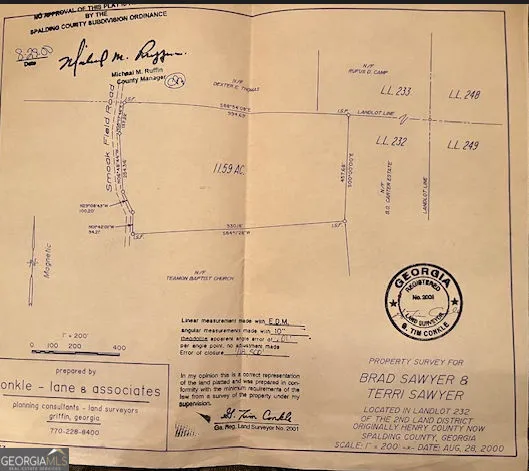 NO APPROVAL OF THIS PLAT IS
BY THE
SPALDING COUNTY SUBDIVISION ORDINANCE
8-29-00
Date
Michael M. Ruffin
Micheal M. Ruffin
County Manager
Smook Field Road
I.S.F.
N/F
DEXTER E. THOMAS
N/F
RUFUS D. CAMP
L.L. 233
L.L. 248
I.S.F.
LANDLOT LINE
L.L. 232
L.L. 249
11.59 AC.
N/F
B.O. CARTER ESTATE
LANDLOT LINE
100.20'
94.21'
I.S.F.
I.S.F.
N/F
TEAMON BAPTIST CHURCH
Magnetic
GEORGIA
REGISTERED
No. 2001
LAND SURVEYOR
G. TIM CONKLE
Linear measurement made with E.D.M.
angular measurement made with 10"
theodolite apparent angle error of
per angle point, no adjustment made
Error of closure
1" = 200'
0 100 200 400
In my opinion this is a correct representation
of the land platted and was prepared in con-
formity with the minimum requirements of the
law from a survey of the property under my
supervision.
G. Tim Conkle
Ga. Reg. Land Surveyor No. 2001
prepared by
onkle - lane & associates
planning consultants - land surveyors
griffin, georgia
770-228-8400
PROPERTY SURVEY FOR
BRAD SAWYER &
TERRI SAWYER
LOCATED IN LANDLOT 232
OF THE 2ND LAND DISTRICT
ORIGINALLY HENRY COUNTY NOW
SPALDING COUNTY, GEORGIA
SCALE: 1" = 200' DATE: AUG. 28, 2000
GEORGIAMLS